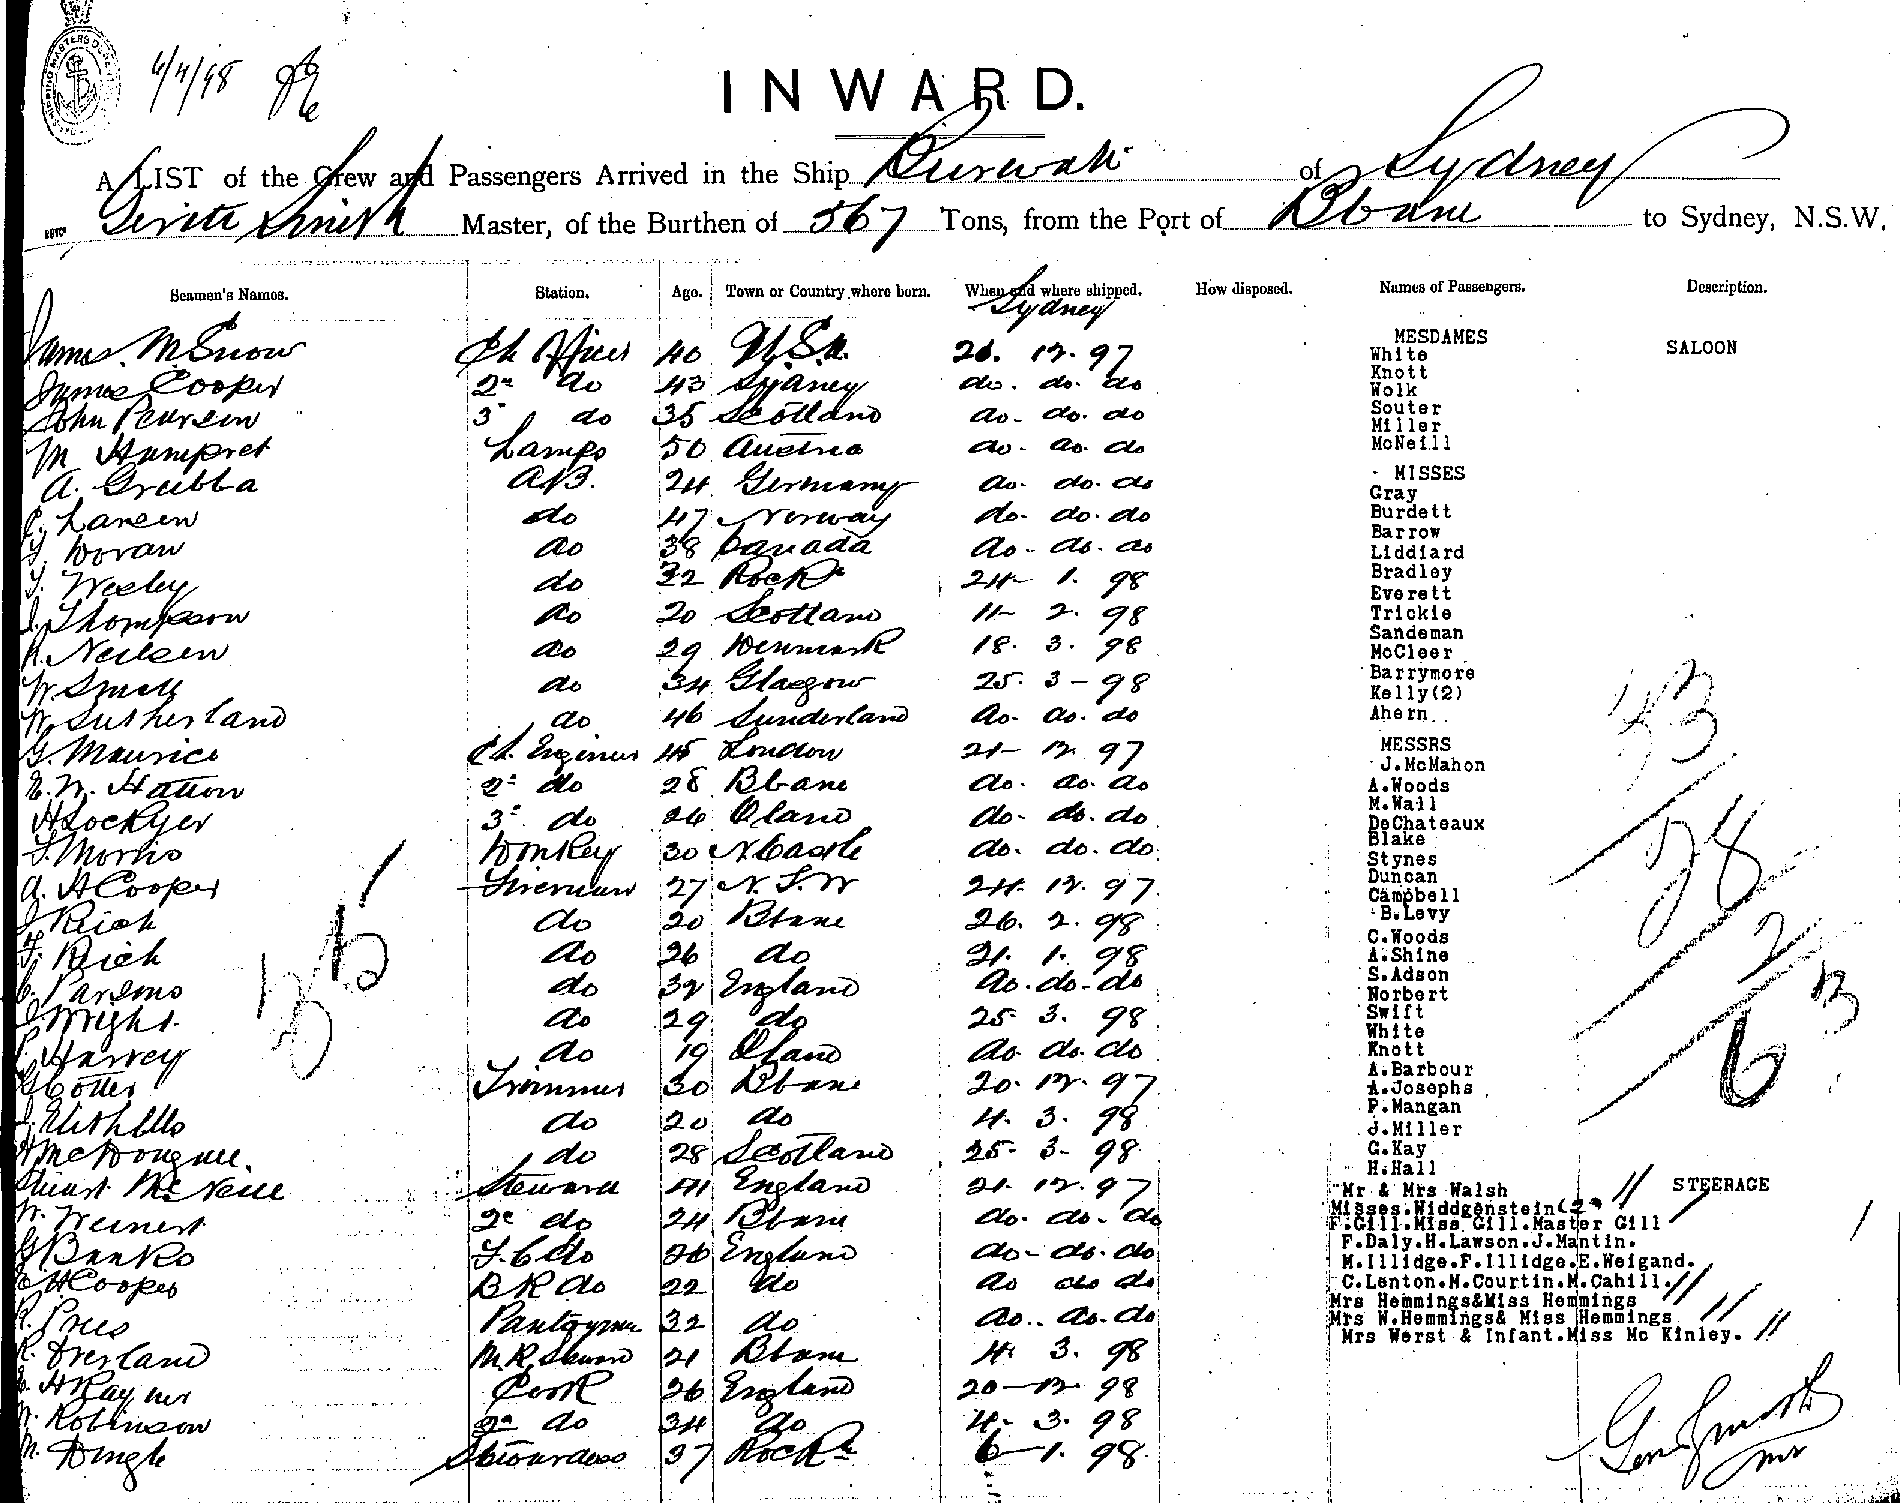 6/4/98
INWARD.
A LIST of the Crew and Passengers Arrived in the Ship Burwah of Sydney
Smith Master, of the Burthen of 567 Tons, from the Port of Bbane to Sydney, N.S.W.
Seamen's Names. Station. Age. Town or Country where born. When and where shipped. How disposed. Names of Passengers. Description.
Sydney
MESDAMES
James McSnow Ch Officer 40 21. 12. 97 White SALOON
Knott
James Cooper 2nd do 43 Sydney do. do. do Wolk
John Pearson 3 do 35 Scotland do. do. do Souter
Miller
M Humpret Lamps 50 Austria do. do. do McNeill
MISSES
A. Grubba A.B. 24 Germany do. do. do Gray
Larsen do 47 Norway do. do. do Burdett
Barrow
Doran do 38 Canada do. do. do Liddiard
Wesley do 32 Rock 24 1. 98 Bradley
Everett
Thompson do 20 Scotland 11 2. 98 Trickie
Sandeman
Neilsen do 29 Denmark 18. 3. 98 McCleer
Barrymore
W. Smell do 34 Glasgow 25. 3 - 98 Kelly(2)
W. Sutherland do 46 Sunderland do. do. do Ahern
G. Maurice Ch. Engineer 45 London 21 12. 97 MESSRS
J.McMahon
E. W. Hatton 2nd do 28 Bbane do. do. do A.Woods
M.Wall
H Lockyer 3rd do 26 Qland do. do. do DeChateaux
Blake
Morris Donkey 30 N Castle do. do. do Stynes
Duncan
A. H Cooper Fireman 27 N. S. W 24. 12. 97 Campbell
J Reich do 20 Bbane 26. 2. 98 B.Levy
C.Woods
F. Reich do 26 do 21. 1. 98 A.Shine
S.Adson
Parsons do 32 England do. do. do Norbert
Wright do 29 do 25 3. 98 Swift
White
Harvey do 19 Qland do. do. do Knott
A.Barbour
G Cotter Trimmer 30 Bbane 20. 12. 97 A.Josephs
P.Mangan
do 20 do 4. 3. 98 J.Miller
McDougall do 28 Scotland 25. 3. 98 G.Kay
H.Hall
Stuart McNeill Steward 41 England 21. 12. 97 Mr & Mrs Walsh STEERAGE
Misses.Widdgenstein(2)
W. Weinert 2nd do 24 Bbane do. do. do F.Gill.Miss Gill.Master Gill
F.Daly.H.Lawson.J.Mantin.
G Banks F.C do 26 England do. do. do M.Illidge.F.Illidge.E.Weigand.
H Cooper B R do 22 do do do do C.Lenton.M.Courtin.M.Cahill.
Mrs Hemmings&Miss Hemmings
Prees Pantryman 32 do do. do. do Mrs W.Hemmings& Miss Hemmings
Mrs Werst & Infant.Miss Mc Kinley.
Overland M.R. Steward 21 Bbane 4. 3. 98
H Rayner Cook 26 England 20 - 12 98
W. Robinson 2nd do 34 do 4. 3. 98
M. Dingle Stewardess 37 Rock 6 - 1. 98
35
33
28
2
63